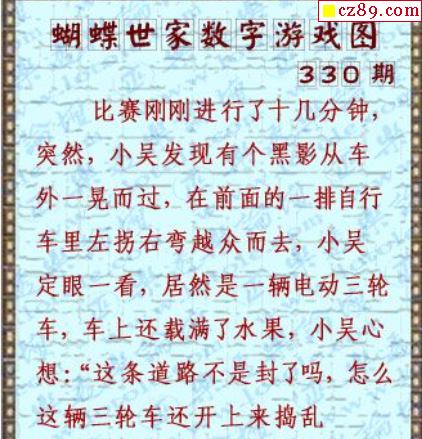 cz89.com
蝴蝶世家数字游戏图
330 期
比赛刚刚进行了十几分钟，
突然，小吴发现有个黑影从车
外一晃而过，在前面的一排自行
车里左拐右弯越众而去，小吴
定眼一看，居然是一辆电动三轮
车，车上还载满了水果，小吴心
想：“这条道路不是封了吗，怎么
这辆三轮车还开上来捣乱